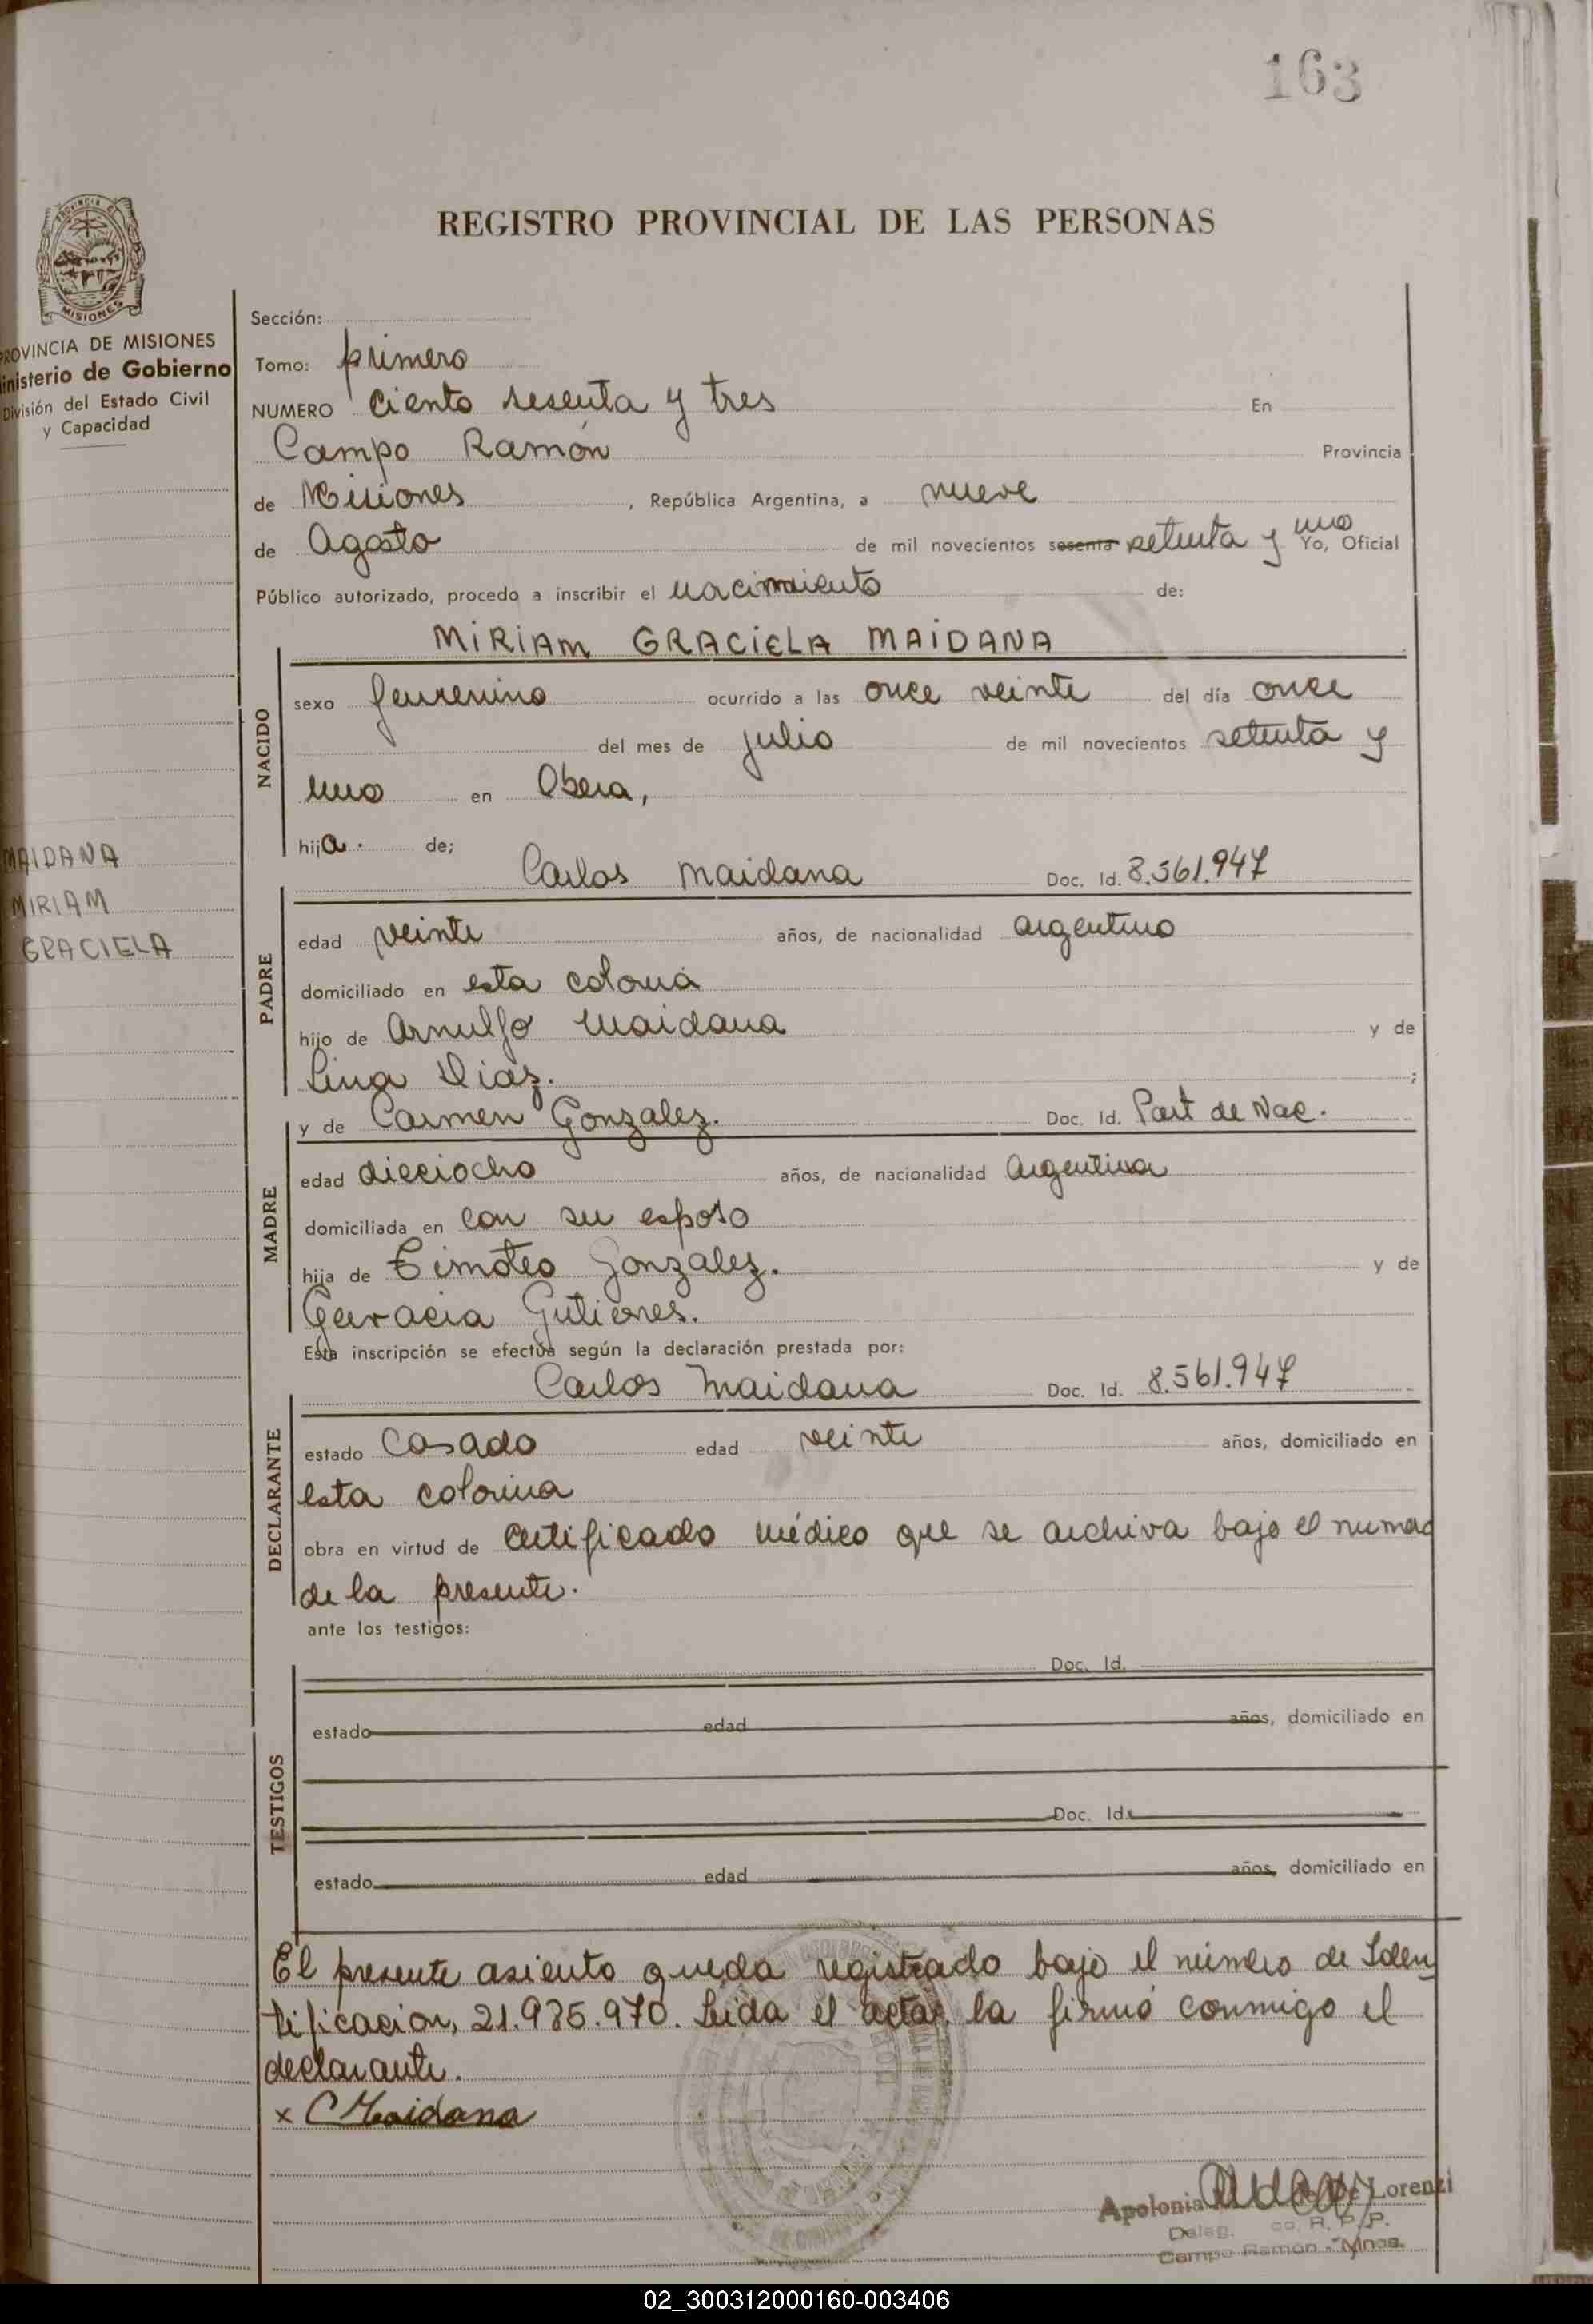 163
REGISTRO PROVINCIAL DE LAS PERSONAS
PROVINCIA DE
MISIONES
PROVINCIA DE MISIONES
inisterio de Gobierno
División del Estado Civil
y Capacidad
Sección:
Tomo: primero
NUMERO Ciento sesenta y tres En
Campo Ramón Provincia
de Misiones, República Argentina, a nueve
de Agosto de mil novecientos sesenta setenta y uno Yo, Oficial
Público autorizado, procedo a inscribir el nacimiento de:
MIRIAM GRACIELA MAIDANA
NACIDO
sexo femenino ocurrido a las once veinte del día once
del mes de julio de mil novecientos setenta y
uno en Obera,
hija. de;
MAIDANA
MIRIAM
GRACIELA
Carlos Maidana Doc. Id. 8.561.947
PADRE
edad veinte años, de nacionalidad argentino
domiciliado en esta colonia
hijo de Arnulfo Maidana y de
Lina Diaz. ;
y de Carmen Gonzalez. Doc. Id. Part de Nac.
MADRE
edad dieciocho años, de nacionalidad Argentina
domiciliada en con su esposo
hija de Timoteo Gonzalez. y de
Gutierres.
Esta inscripción se efectúa según la declaración prestada por:
Carlos Maidana Doc. Id. 8.561.947
DECLARANTE
estado Casado edad veinte años, domiciliado en
esta colonia
obra en virtud de Certificado médico que se archiva bajo el numero
de la presente.
ante los testigos:
TESTIGOS
Doc. Id.
estado edad años, domiciliado en
Doc. Id.
estado edad años, domiciliado en
El presente asiento queda registrado bajo el número de Iden
tificacion, 21.985.970. Leida el acta, la firmó conmigo el
declarante.
x C Maidana
Apolonia de Lorenzi
Deleg. R. P. P.
Campo Ramon - Mnes.
02_300312000160-003406